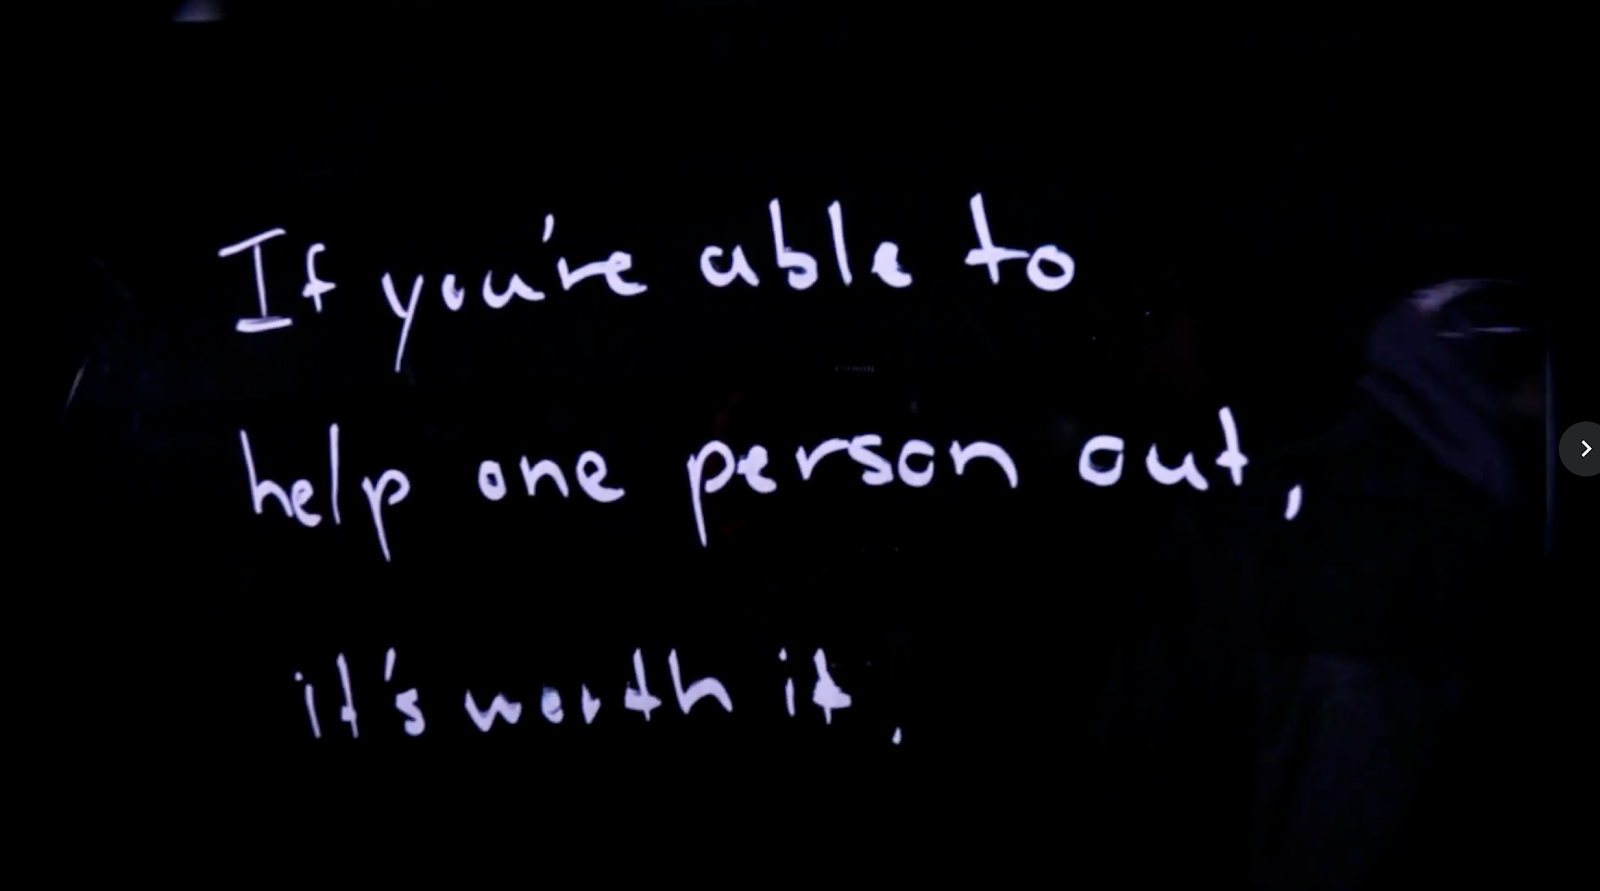 If you're able to
help one person out,
it's worth it.
Canon